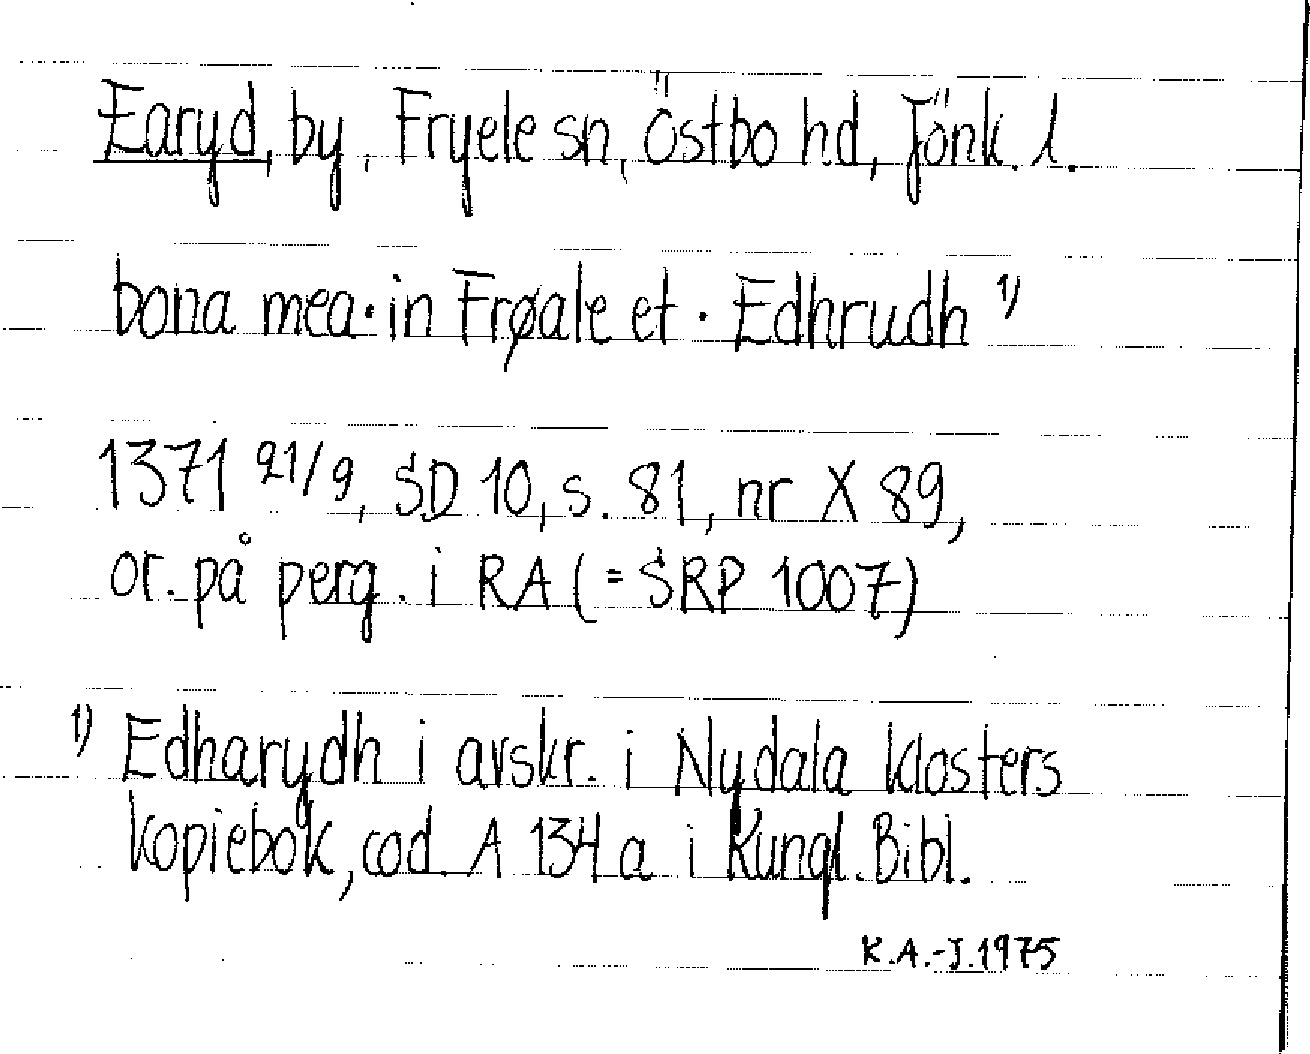 Earyd, by, Fryele sn, Östbo hd, Jönk. l.
bona mea · in Frøale et · Edhrudh 1)
1371 21/9, SD 10, s. 81, nr X 89,
or. på perg. i RA (= SRP 1007)
1) Edharydh i avskr. i Nydala klosters
kopiebok, cod. A 134 a i Kungl. Bibl.
K.A.-J. 1975